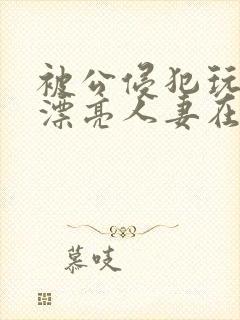 被公侵犯玩
漂亮人妻在
慕吱